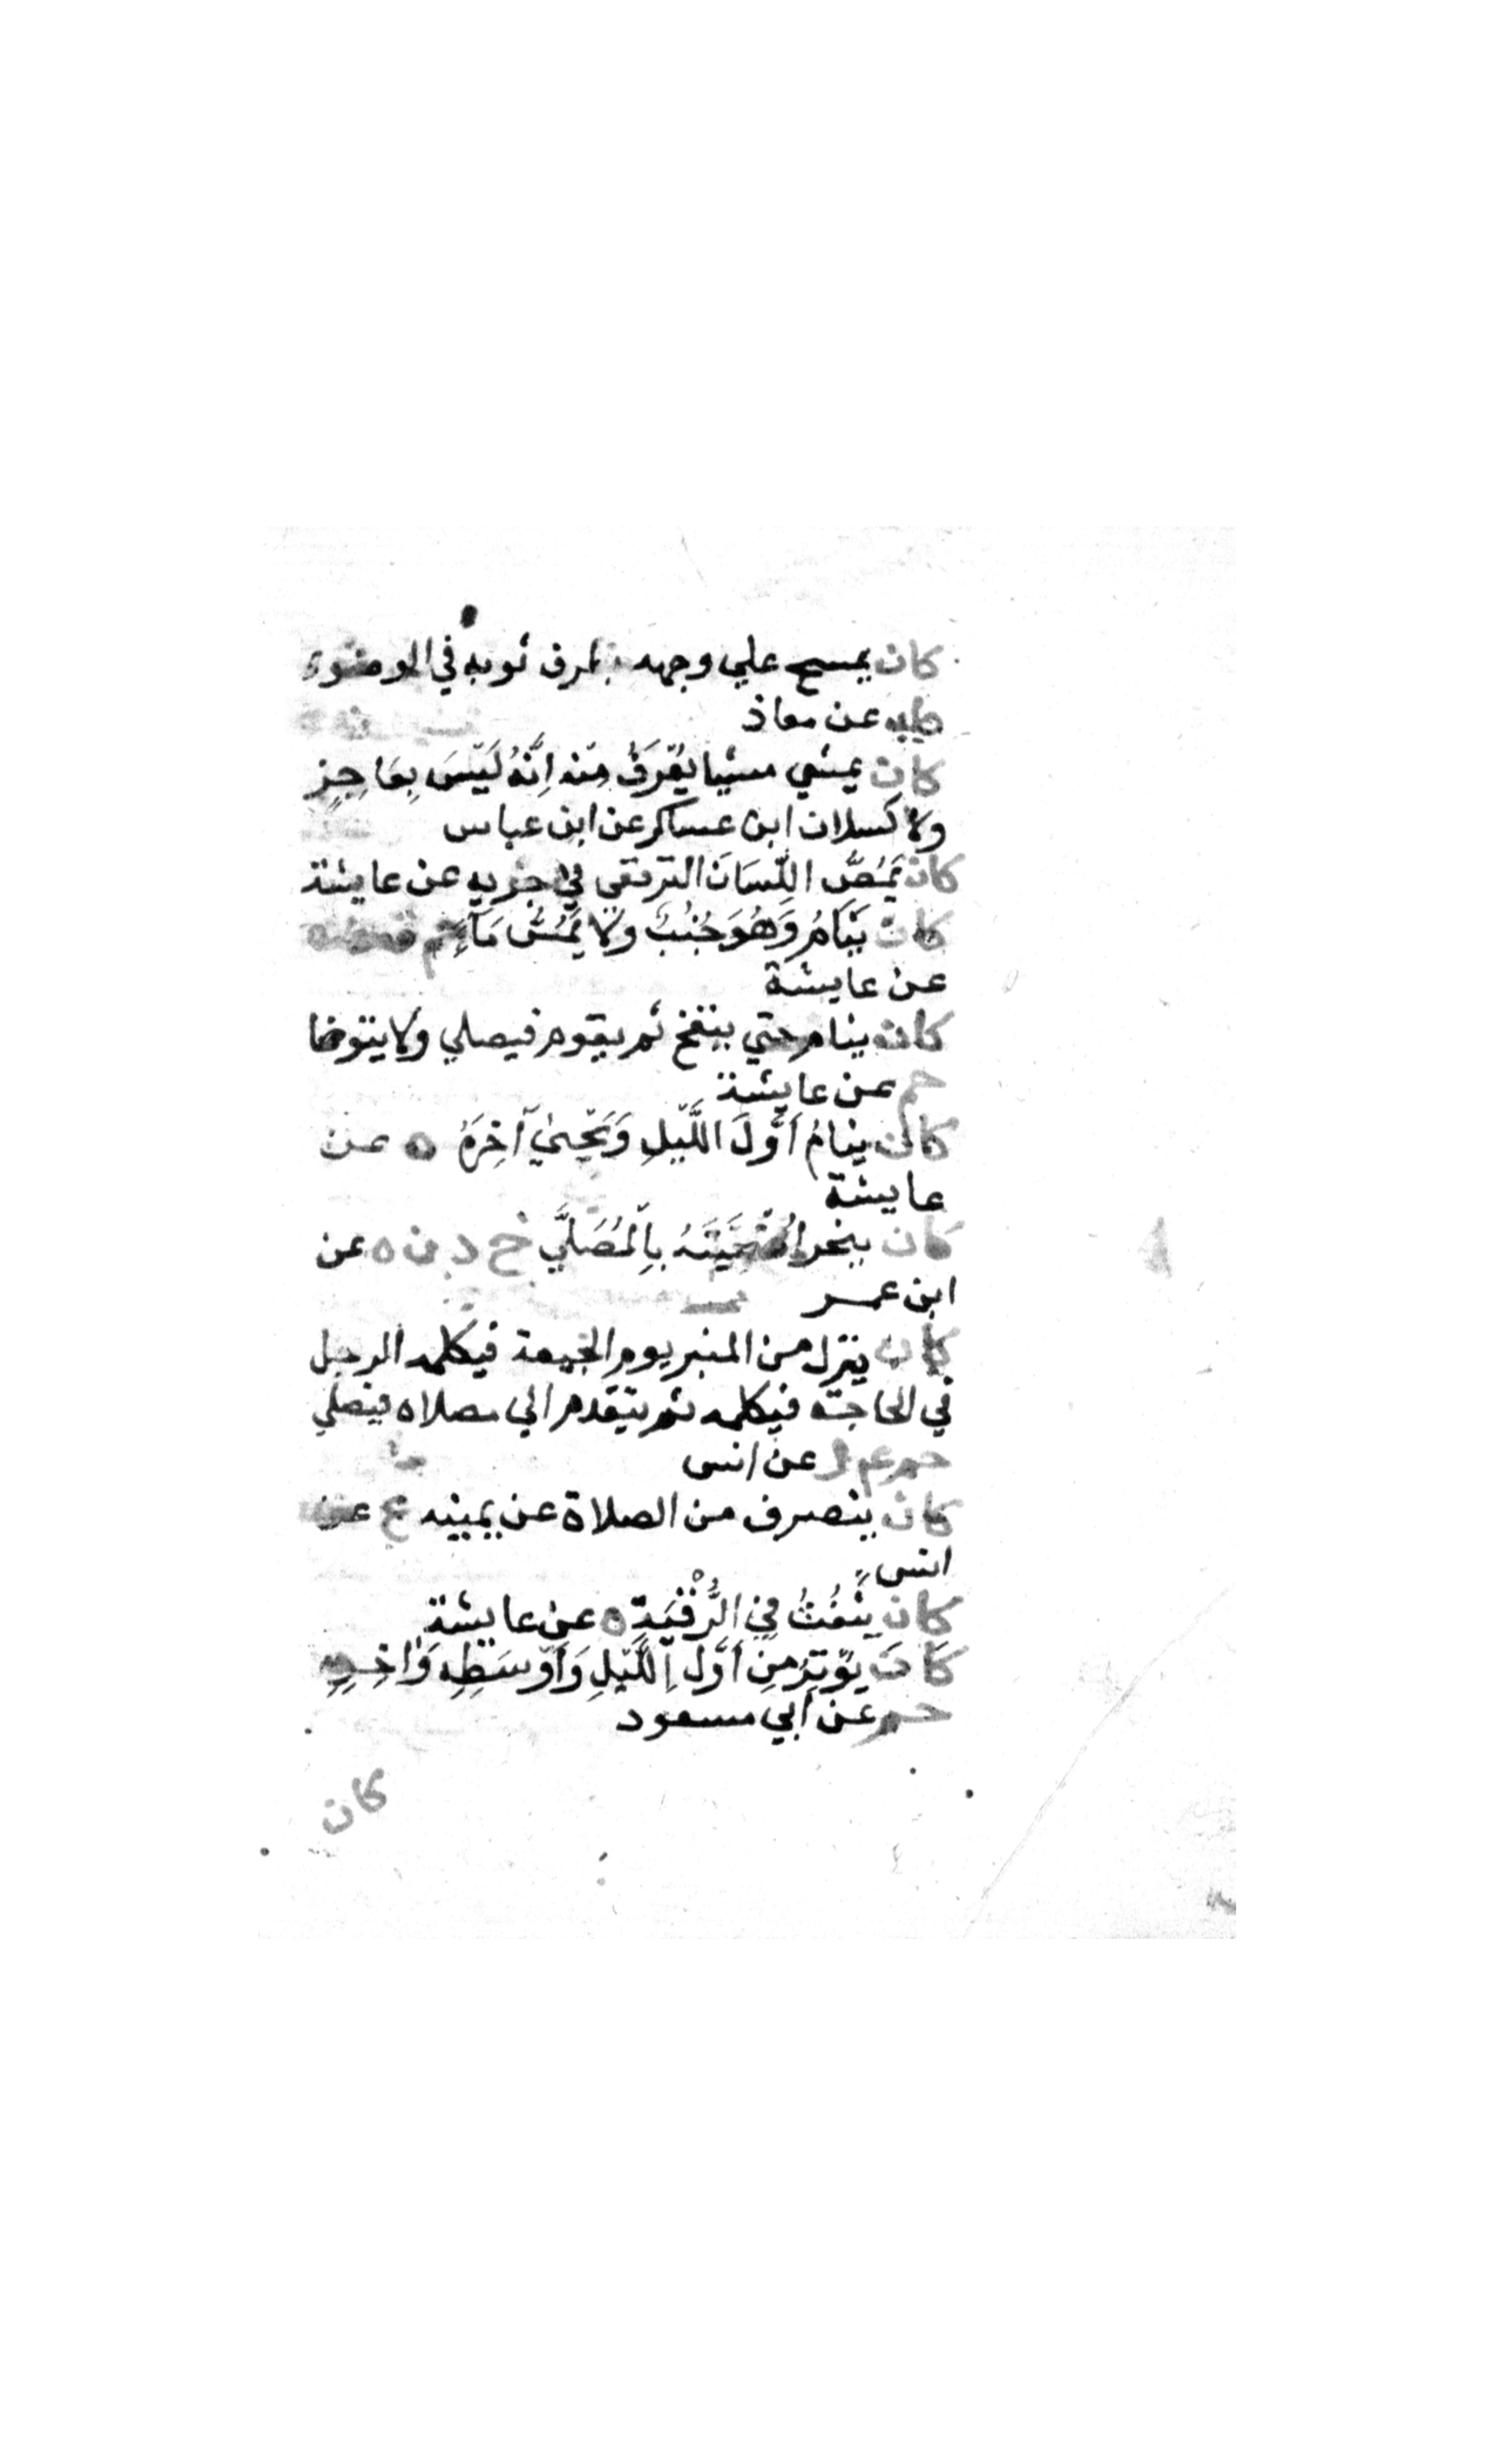 كان يمسح علي وجهه بطرف ثوبه في الوضوء
طب عن معاذ
كان يمشي مشيا يُعْرَفُ مِنْه اِنَّهُ لَيْسَ بِعَاجِزٍ
ولا كسلان ابن عساكر عن ابن عباس
كان يَمُصُّ اللِّسَانَ الترقفي في جزيه عن عايشة
كان يَنَامُ وَهُوَ جُنُبٌ وَلَا يَمَسُّ مَآءً حم
عن عايشة
كان ينام حتي ينفخ ثم يقوم فيصلي ولا يتوضا
حم عن عايشة
كان ينامُ اَوَّلَ اللَّيْلِ وَيُحْيِيْ آخِرَهُ ه عن
عايشة
كان ينحر اُضْحِيَّتَهُ بِالْمُصَلَّي خ د ن ه عن
ابن عمر
كان ينزل من المنبر يوم الجمعة فيكلمه الرجل
في الحاجة فيكلمه ثم يتقدم الي مصلاه فيصلي
حم عم ك عن انس
كان ينصرف من الصلاة عن يمينه ع عن
انس
كان يَنْفُثُ فِي الرُّقْيَةِ ه عن عايشة
كَانَ يُوْتِرُ مِنْ اَوَّلِ اللَّيْلِ وَاَوْسَطِهِ وَاٰخِرِهِ
حم عن ابي مسعود
كان